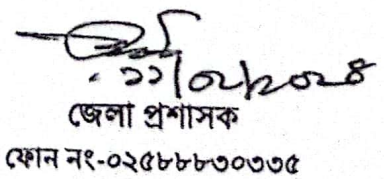 ১১/০২/২০২৪
জেলা প্রশাসক
ফোন নং-০২৫৮৮৮৩০৩৩৫